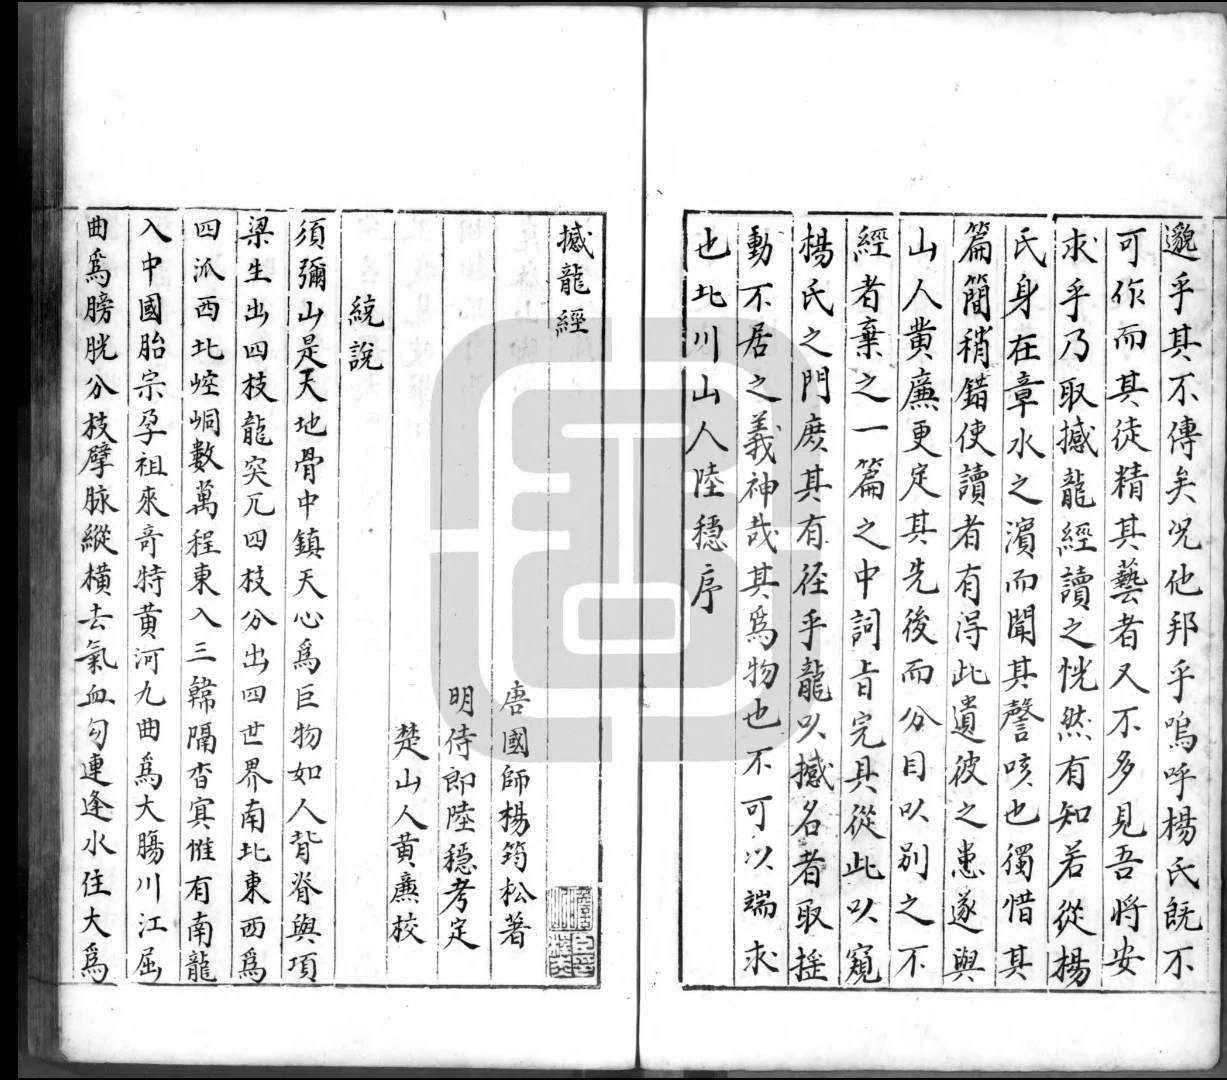 邈乎其不傳矣况他邦乎嗚呼楊氏旣不
可作而其徒精其藝者又不多見吾將安
求乎乃取撼龍經讀之恍然有知若從楊
氏身在章水之濵而聞其謦咳也獨惜其
篇簡稍錯使讀者有得此遺彼之患遂與
山人黄廉更定其先後而分目以别之不
經者棄之一篇之中詞旨完具從此以窺
楊氏之門庶其有径乎龍以撼名者取揺
動不居之義神哉其爲物也不可以端求
也北川山人陸穩序
撼龍經
唐國師楊筠松著
明侍郎陸穩考定
楚山人黄廉校
統說
須彌山是天地骨中鎮天心爲巨物如人背脊與項
梁生出四枝龍突兀四枝分出四世界南北東西爲
四派西北崆峒數萬程東入三韓隔杳冥惟有南龍
入中國胎宗孕祖來竒特黄河九曲爲大腸川江屈
曲爲膀胱分枝擘脉縱横去氣血勾連逢水住大爲